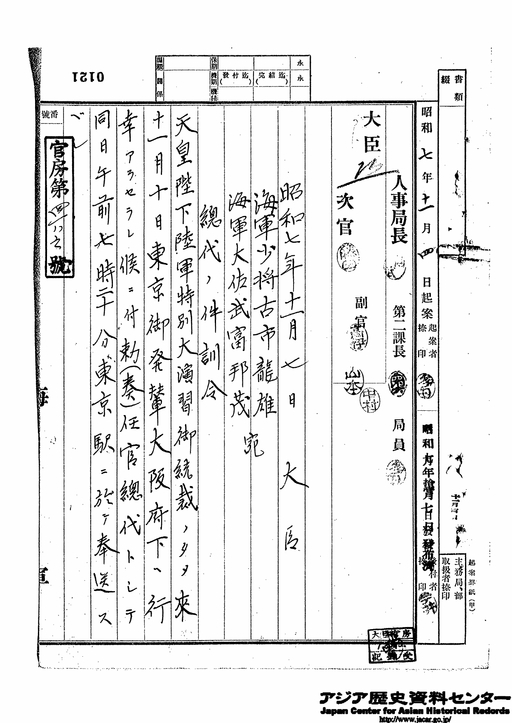 書類
綴
昭和七年十一月四日起案
起案者
捺印
昭和七年拾壱月七日發布濟
主務局部
取扱者捺印
大臣
人事局長
第二課長
局員
次官
副官
山本
中村
昭和七年十一月七日
大臣
海軍少将古市龍雄
海軍大佐武富邦茂
宛
總代ノ件訓令
天皇陛下陸軍特別大演習御統裁ノタメ來
十一月十日東京御発輦大阪府下ヘ行
幸アラセラレ候ニ付勅(奏)任官總代トシテ
同日午前七時二十分東京駅ニ於テ奉送ス
ベシ
番號
官房第
號
永
永
0121
海
軍
アジア歴史資料センター
Japan Center for Asian Historical Records
http://www.jacar.go.jp/